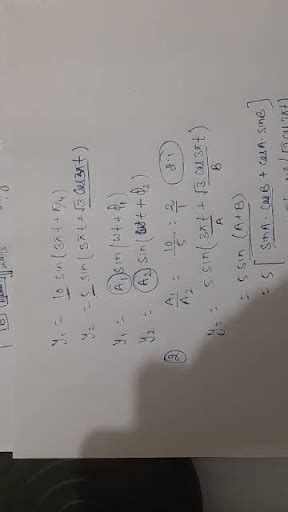 y₁ = 10 sin(3πt + π/4)
y₂ = 5 sin(3πt + √3 cos3πt)
y₁ = A₁ sin(ωt + θ₁)
y₂ = A₂ sin(ωt + θ₂)
② A₁/A₂ = 10/5 = 2/1 2:1
y₂ = 5 sin(3πt + √3 cos3πt)
A B
= 5 sin (A+B)
= 5 [sinA · cosB + cosA · sinB]